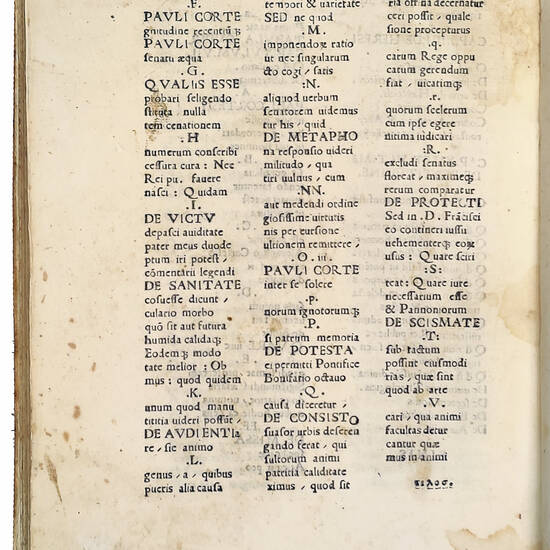 .F.
PAVLI CORTE
gnitudine recentiũq;
PAVLI CORTE
senatu æqua
.G.
QVALIS ESSE
probari seligendo
stituta, nulla
tem cenationem
.H
numerum conscribi
cessura cura : Nec
Rei pu. fauere
nasci : Quidam
.I.
DE VICTV
depasci auiditate
pater meus duode
ptum iri potest,
cõmentarii legendi
DE SANITATE
cosuesse dicunt,
culario morbo
quõ sit aut futura
humida calidaq;
Eodemq; modo
tate melior : Ob
mus : quod quidem
.K.
unum quod manu
tititia uideri possut
DE AVDIENTIa
re, sic animo
.L.
genus, a, quibus
pueris alia causa
tempori & uarietate
SED ne quod
.M.
imponendæ ratio
ut nec singularum
cto cogi, satis
:N.
aliquod uerbum
senatorem uidemus
tur his, quid
DE METAPHO
na responsio uideri
militudo, qua
titi uulnus, cum
.NN.
aut medendi ordine
giosissime uirtutis
nis per eursione
ultionem remittere,
.O iii.
PAVLI CORTE
inter se solere
.p.
norum ignotorumq;
P.
si patrum memoria
DE POTESTA
ei permitti Pontifice
Bonifatio octauo
.Q.
causa diceretur,
DE CONSISTO
suasor urbis deseren
gando ferat, qui
sultorum animi
patritia caliditate
ximus, quod sit
ria off na decernatur
ceri possit, quale
sione procepturus
.q.
catum Rege oppu
catum gerendum
fiat, uicatimq;
.r.
quorum scelerum
cum ipse egere
nitima iudicari
:R.
excludi senatus
floreat, maximeq;
rerum comparatur
DE PROTECTI
Sed in .D. Frãcisci
eo contineri iussu
uehementerq;
usus : Quare sciri
:S:
teat : Quare iure
necessarium esse
& Pannoniorum
DE SCISMATE
.T:
sub tactum
possint eiusmodi
trias, quæ sint
quod ab arte
.V.
cari, qua animi
facultas detur
cantur quæ
mus in animi
τέλος.